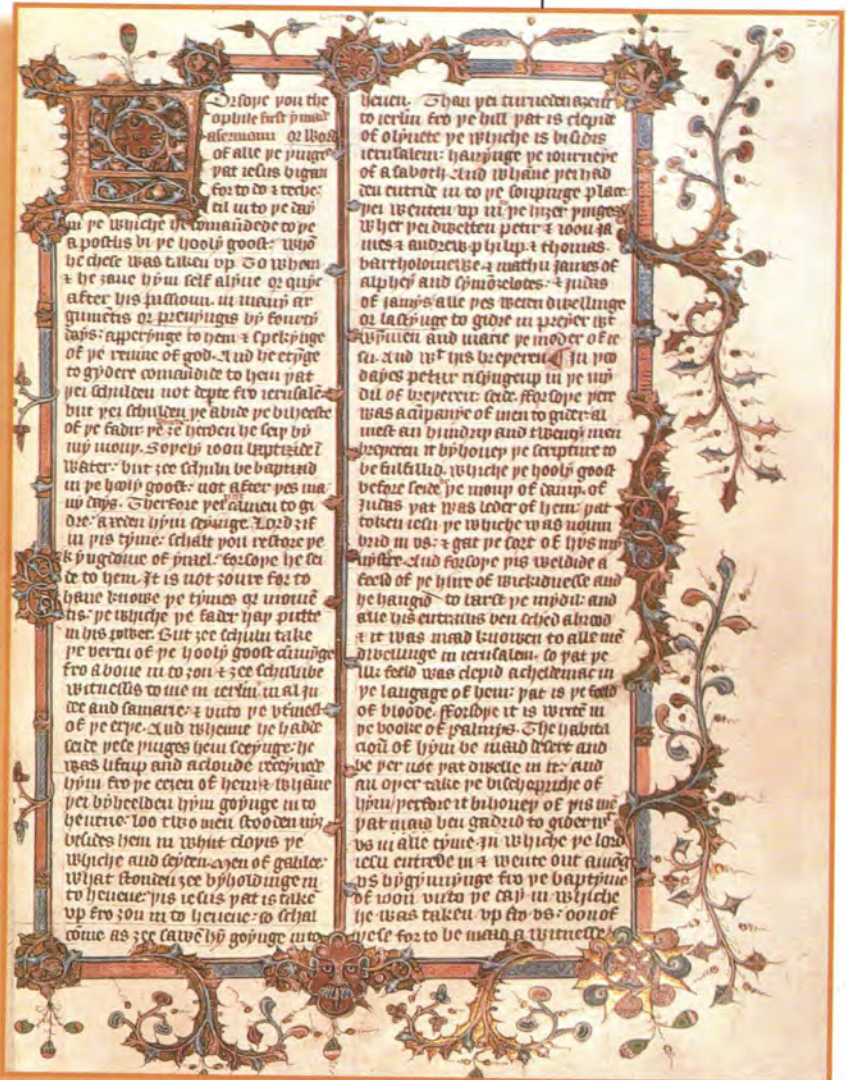 Orsoþe þou the
ophile first y maad
a sermoun or word
of alle þe þinges
þat iesus bigan
for to do & teche:
til in to þe day
in þe whiche he comaundede to þe
apostlis bi þe hooly goost: whō
he chese was taken vp. To whom
& he ȝaue hym self alyue or quyc
after his passioun. in many ar
gumētis or preuyngis by fourty
days: apperynge to hem & spekynge
of þe reume of god. And he etynge
to gydere comaundide to hem þat
þei schulden not depte fro ierusalē
but þei schulden þe abide þe biheeste
of þe fadir þe ȝe herden he seiþ by
my mouþ. Soþely ioon baptizide ī
water: but ȝee schuln be baptizid
in þe hooly goost: not after þes ma
ny days. Therfore þei camen to gi
dre: axeden hym seyinge. Lord ȝif
in þis tyme: schalt þou restore þe
kyngdome of ysrael. forsoþe he sei
de to hem. It is not ȝoure for to
haue knowe þe tymes or momē
tis: þe whiche þe fader haþ putte
in his power. But ȝee schuln take
þe vertu of þe hooly goost cūmynge
fro aboue in to ȝou & ȝee schuln be
witnessis to me in ierlm in al iu
dee and samarie: & vnto þe vtmest
of þe erþe. And whenne he hadde
seide þese þinges hem seeynge: he
was liftup and a cloude receyued
hym fro þe eeien of hem & whāne
þei byheelden hym goynge in to
heuene: loo two men stooden nyȝ
besides hem in whit cloþis þe
whiche and seyden. Men of galilee:
what stonden ȝee byholdinge in
to heuene: þis iesus þat is take
vp fro ȝou in to heuene: so schal
come as ȝee sawē hȳ goynge in to
heuen. Than þei turneden aȝein
to ierlm fro þe hill þat is clepid
of olyuete þe whiche is bisidis
ierusalem: hauynge þe iourneye
of a saboth. And whāne þei had
den entride in to þe soupinge place
þei wenten vp in þe hiȝer þinges
wher þei dwelten petir & ioon ja
mes & andrew philip & thomas.
bartholomewe & mathu james of
alphey and symō zelotes: & judas
of jamys alle þes weren dwellinge
or lastynge to gidre in preyer wt
wymen and marie þe moder of ie
su. And wt his breþeren In þoo
dayes petur risynge up in þe myd
dil of breþeren seide. fforsoþe þere
was a cūpanye of men to gider al
mest an hundrid and twenty men
breþeren it byhoueþ þe scripture to
be fulfillid. whiche þe hooly goost
before seide þe mouþ of dauiþ. of
Judas þat was leder of hem: þat
token iesu þe whiche was noum
brid in vs: & gat þe sort of hys my
nystre. And forsoþe þis weldide a
feeld of þe hire of wickidnesse and
he hangid to barst þe mydil: and
alle his entrailis ben sched abrood
& it was maad knowen to alle mē
dwellinge in ierusalem. so þat þe
ilk feeld was clepid acheldemac in
þe langage of hem: þat is þe feeld
of bloode. fforsoþe it is writē in
þe booke of psalmys. The habita
cioū of hym be maad desert and
be þer not þat dwelle in it: and
an oþer take þe bischopriche of
hym þerfore it bihoueþ of þis mē
þat maad ben gadrid to gider wt
vs in alle tyme. in whiche þe lord
iesu entrede in & wente out amōg
vs bygynnynge fro þe baptyme
of ioon vnto þe day in whiche
he was taken vp fro vs: oon of
þese for to be maad a witnesse